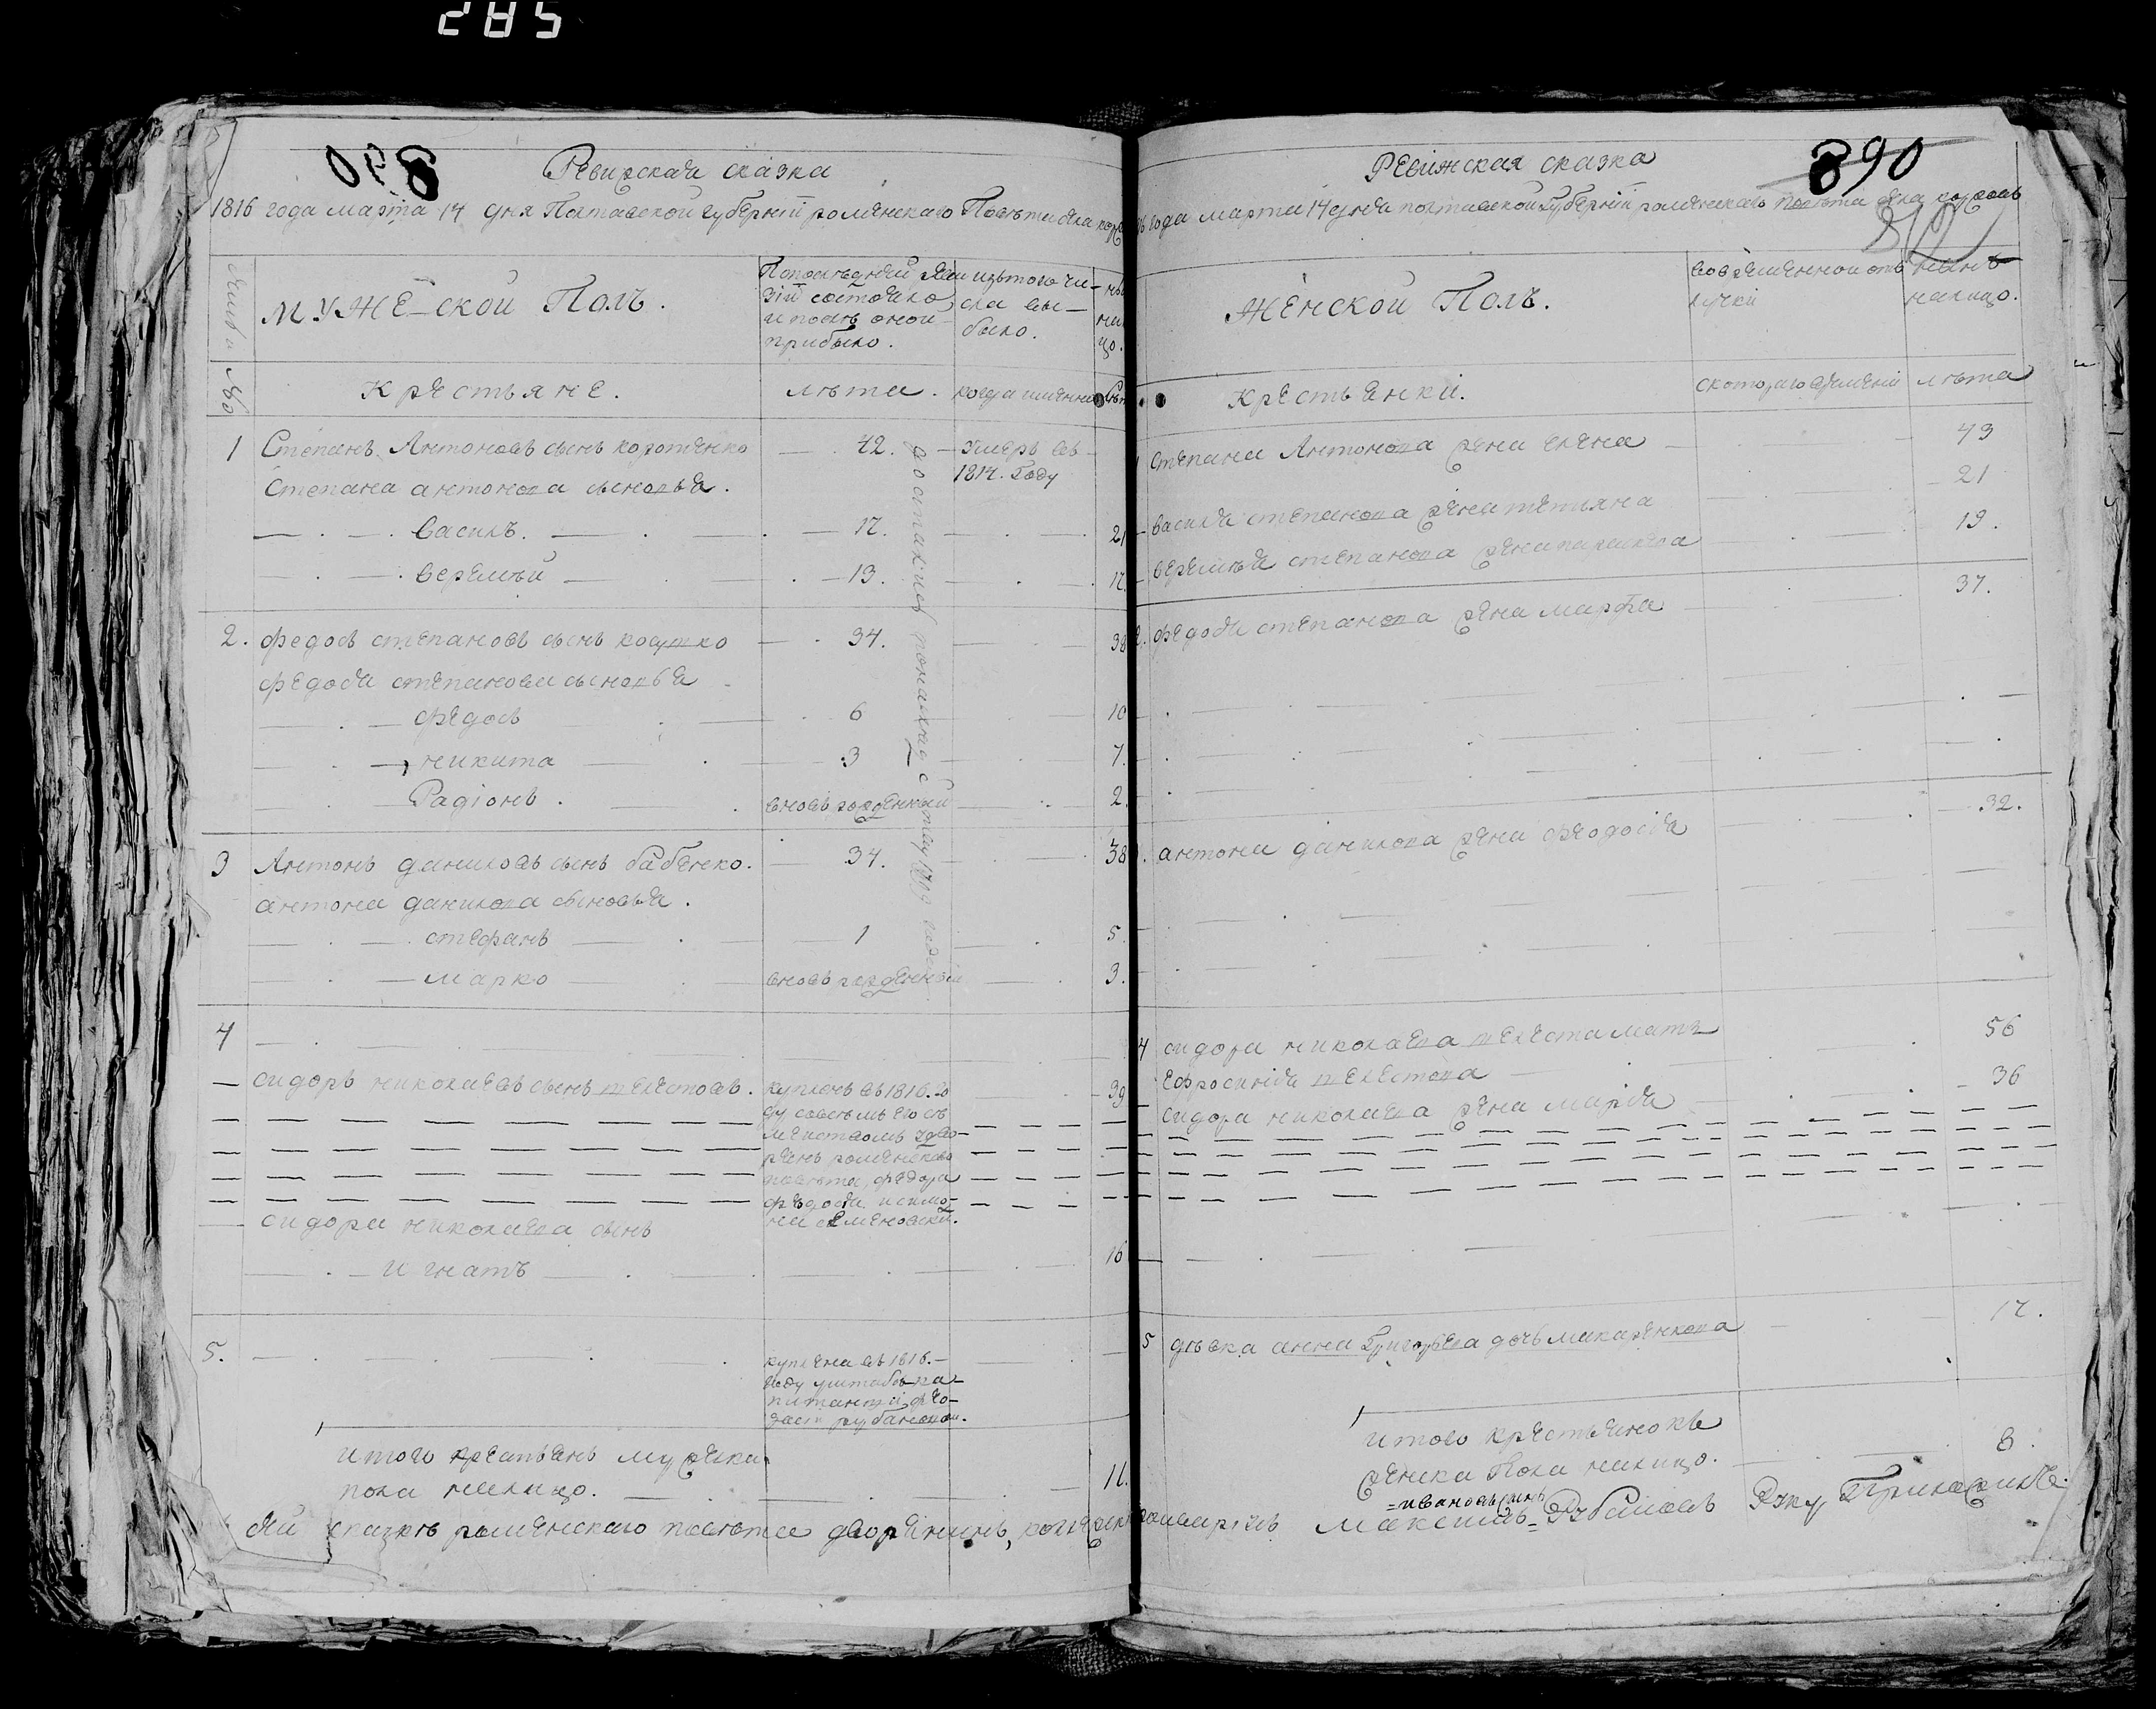 285
890
Ревизская сказка
1816 года марта 14 дня Полтавской губерніи роменскаго Повѣта
Мужеской Полъ.
Попослѣдней реви
зіи состояло
и послѣ оной
прибыло.
изътого чи-
сла вы-
было.
№
Крестьяне.
лѣта.
когда именно
1 Степанъ Антоновъ сынъ коротенко 42. умеръ въ
1814. Году
Степана антонова сыновья.
Василь. 17. 21
веремѣй 13. 17.
2. федось степановъ сынъ 34. 38
федося степанова сыновья
федось 6 10
никита 3 7.
Радіонъ. вновь рожденный 2.
3 Антонъ даниловъ сынъ бабенко. 34. 38
антона данилова сыновья.
стефанъ 1 5.
марко вновь рожденный 3.
4
сидоръ николаевъ сынъ телестовъ. купленъ въ 1816. го 39
ду совсѣмъ его се
мействомъ
роменскаго
повѣта федора
федося
сидора николаева сынъ
игнатъ 16
5. куплена въ 1816.
году уштабсъ ка-
питанши фео-
рубановой.
итого крестьянъ мужеска
пола налицо. 11.
сказкѣ роменскаго повѣта дворянинъ,
Ревижская сказка
890
года марта 14 дня полтавской Губерніи роменскаго повѣта
Женской Полъ.
вовременной отъ
лучки
нынѣ
налицо.
Крестьянки.
скотораго времени
лѣта
степана Антонова жена елена 43
василя степанова жена тетьяна 21
веремѣя степанова жена параскева 19.
2. федося степанова жена марфа 37.
антона данилова жена феодосія 32.
4 сидора николаева телеста мать 56
Ефросинія телестова
сидора николаева жена марія 36
5 дѣвка анна Григорьева дочь макаренкова 17.
итого крестьянокъ
женска Пола налицо. 8.
=ивановъ сынъ
Максимъ= Рубановъ Руку Приложилъ.